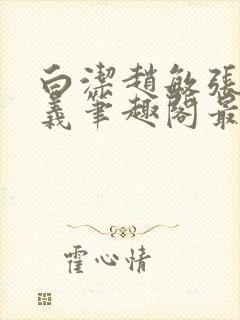 白潔趙敏張
義筆趣閣最
霍心情